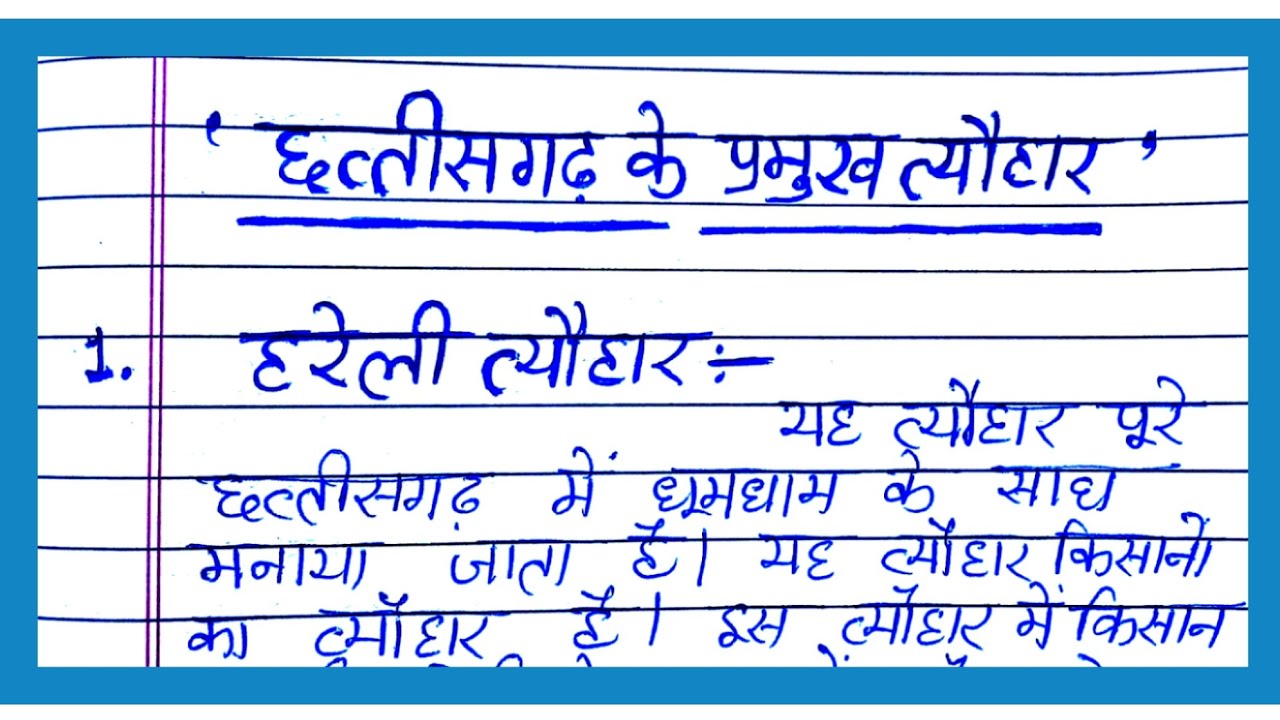 ' छत्तीसगढ़ के प्रमुख त्यौहार '
1. हरेली त्यौहार :-
यह त्यौहार पूरे
छत्तीसगढ़ में धूमधाम के साथ
मनाया जाता है। यह त्यौहार किसानों
का त्यौहार है। इस त्यौहार में किसान